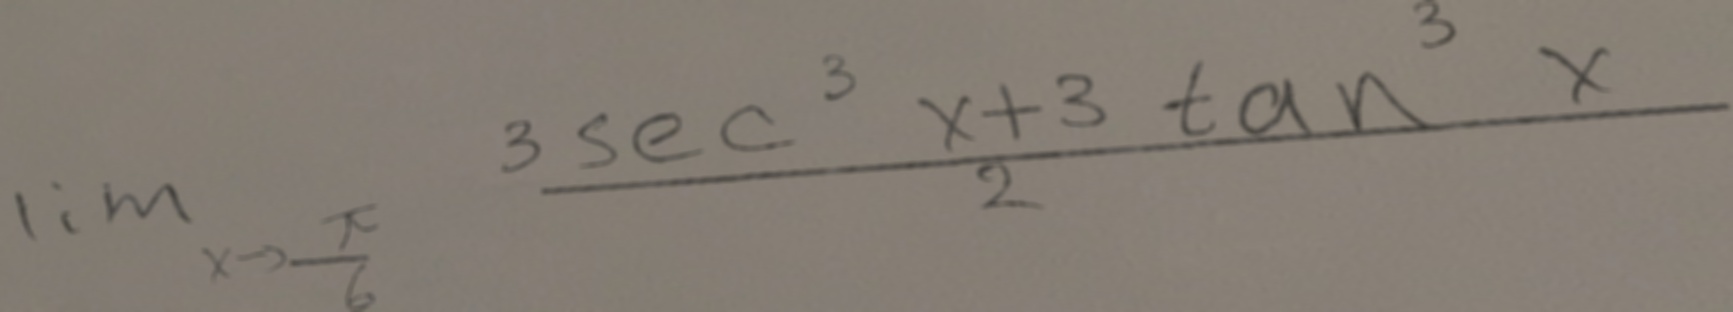 lim x→π/6 (3 sec³ x + 3 tan³ x)/2